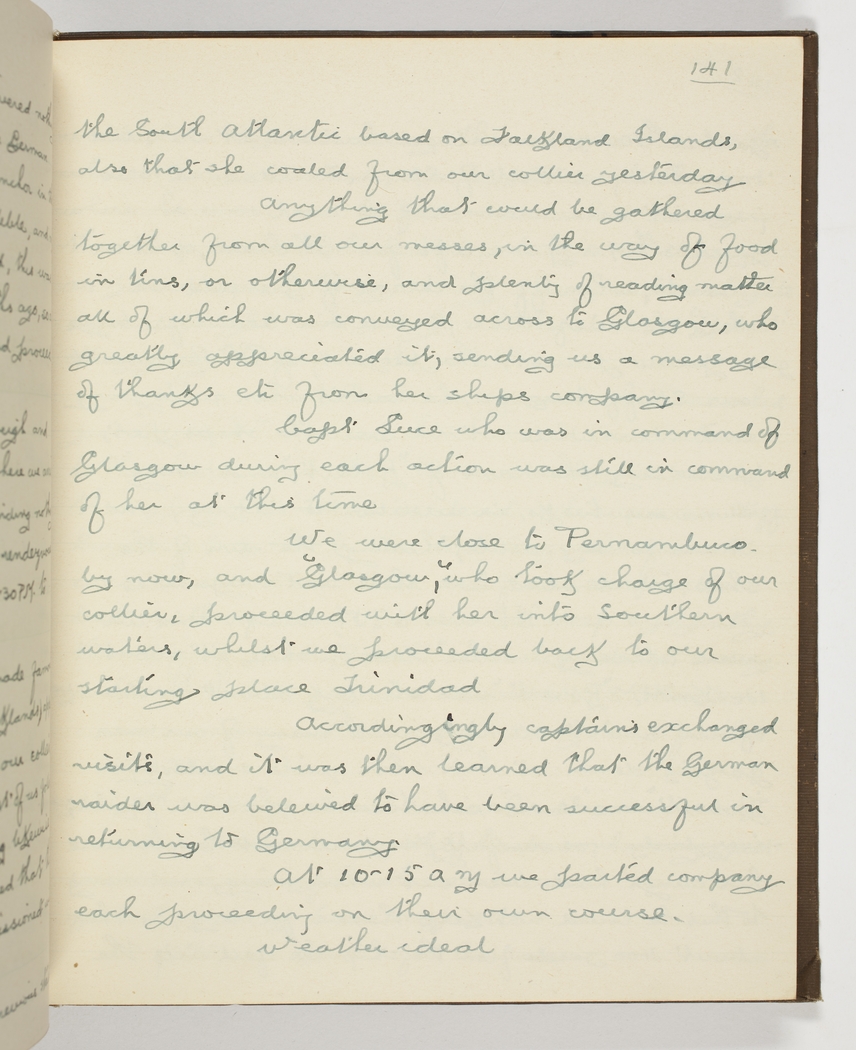 141
the South Atlantic based on Falkland Islands,
also that she coaled from our collier yesterday
Anything that could be gathered
together from all our messes, in the way of food
in tins, or otherwise, and plenty of reading matter
all of which was conveyed across to Glasgow, who
greatly appreciated it, sending us a message
of thanks etc from her ships company.
Capt Luce who was in command of
Glasgow during each action was still in command
of her at this time
We were close to Pernambuco.
by now, and "Glasgow," who took charge of our
collier, proceeded with her into Southern
waters, whilst we proceeded back to our
starting place Trinidad
Accordingingly captains exchanged
visits, and it was then learned that the German
raider was beleived to have been successful in
returning to Germany.
At 10-15 am we parted company
each proceeding on their own course.
Weather ideal